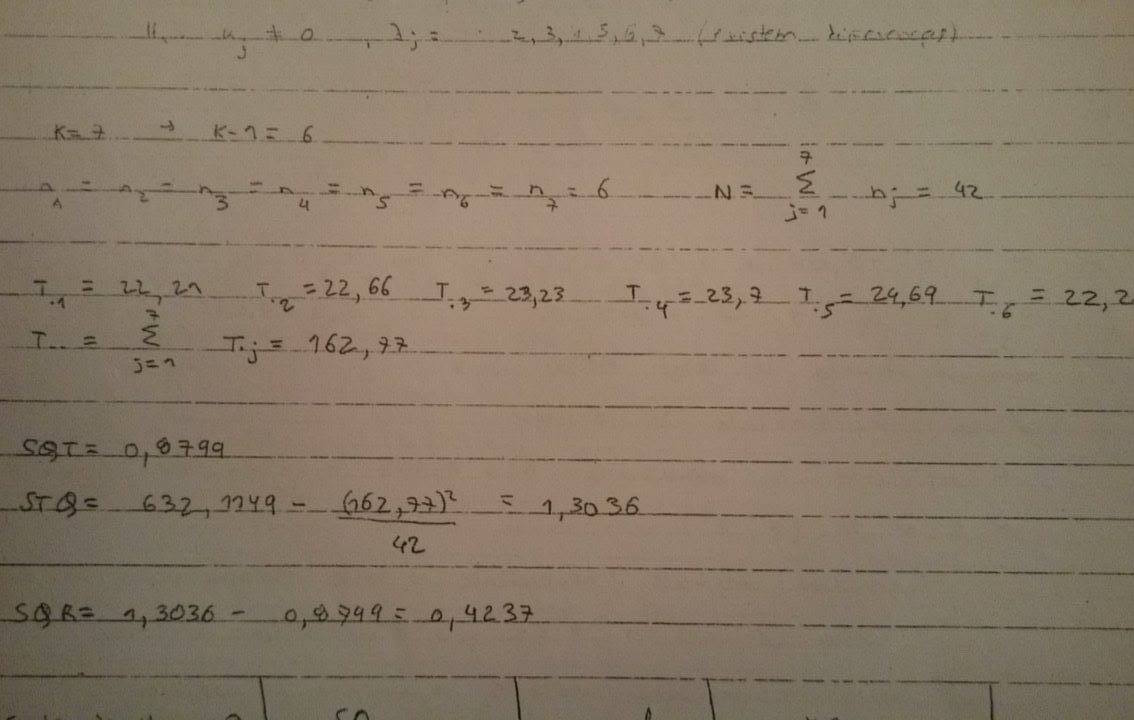 ≠ 0 , j = 2, 3, 4, 5, 6, 7 (existem diferenças)
K = 7 → K - 1 = 6
n₁ = n₂ = n₃ = n₄ = n₅ = n₆ = n₇ = 6 N = Σ⁷ⱼ₌₁ nⱼ = 42
T.₁ = 22,21 T.₂ = 22,66 T.₃ = 23,23 T.₄ = 23,7 T.₅ = 24,69 T.₆ = 22,2
T.. = Σ⁷ⱼ₌₁ T.ⱼ = 162,77
SQT = 0,8799
STQ = 632,1149 - (162,77)² / 42 = 1,3036
SQR = 1,3036 - 0,8799 = 0,4237
SQ